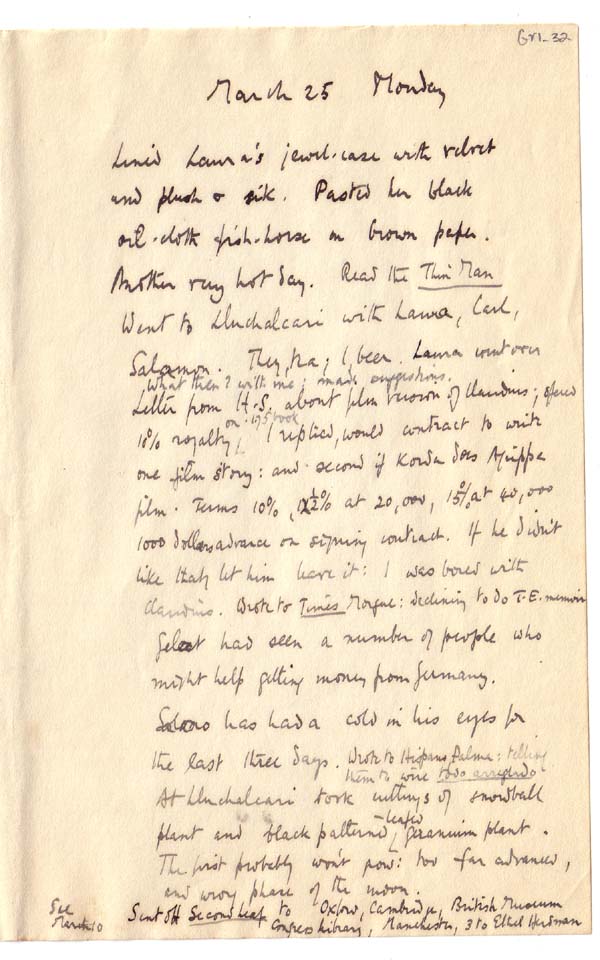 GX1-32
March 25 Monday
Lined Laura's jewel-case with velvet
and plush & silk. Pasted her black
oil-cloth fish-horse on brown paper.
Another very hot day. Read the Thin Man
Went to Lluchalcari with Laura, Carl,
Salomon. They, tea; I, beer. Laura went over
What then? with me; made suggestions.
Letter from H.S. about film version of Claudius; offered
on book
10% royalty; I replied, would contract to write
one film story: and second if Korda does Agrippa
film. Terms 10%, 12½% at 20,000, 15% at 40,000
1000 dollars advance on signing contract. If he didn't
like that, let him leave it: I was bored with
Claudius. Wrote to Times Morgue: declining to do T.E. memoir
Gelat had seen a number of people who
might help getting money from Germany.
Solomo has had a cold in his eyes for
the last three days. Wrote to Hispano Palma: telling
them to wire todo arreglado
At Lluchalcari took cuttings of snowball
plant and black patterned-leafed geranium plant.
The first probably won't grow: too far advanced,
and wrong phase of the moon.
See March 10
Sent off Second Leaf to Oxford, Cambridge, British Museum
Congress Library, Manchester, 3 to Ethel Herdman